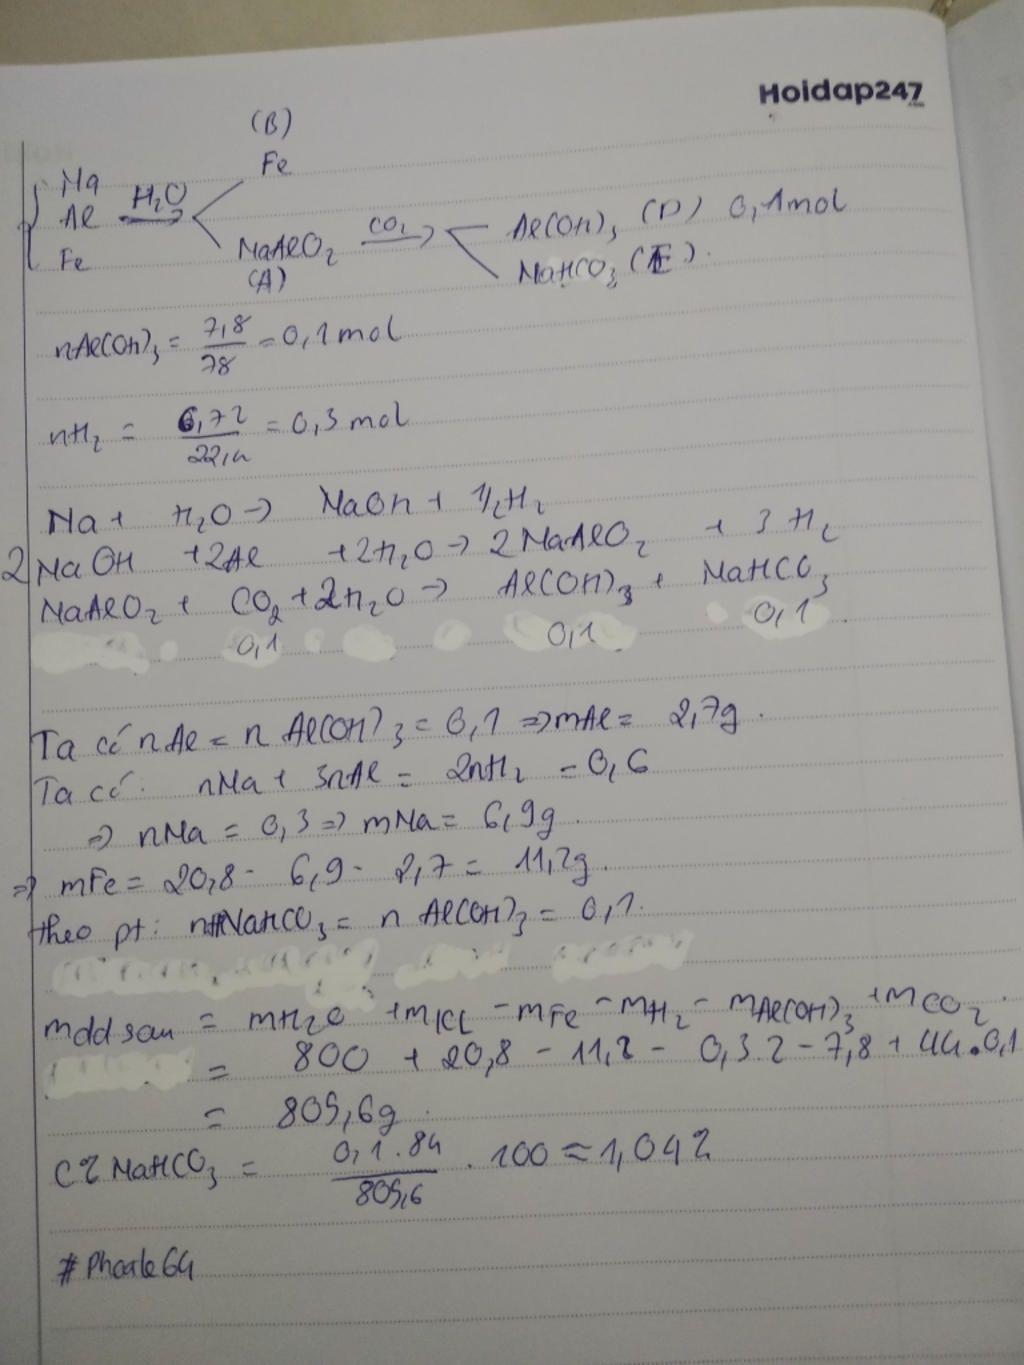 Hoidap247
.com
(B)
Fe
Na
Al
Fe
H₂O
NaAlO₂
(A)
CO₂
Al(OH)₃ (D) 0,1mol
NaHCO₃ (E).
nAl(OH)₃ = 7,8/78 = 0,1 mol
nH₂ = 6,72/22,4 = 0,3 mol
Na + H₂O → NaOH + 1/2H₂
2NaOH +2Al +2H₂O → 2NaAlO₂ + 3H₂
NaAlO₂ + CO₂ + 2H₂O → Al(OH)₃ + NaHCO₃
0,1 0,1 0,1
Ta có nAl = n Al(OH)₃ = 0,1 => mAl = 2,7g.
Ta có: nNa + 3nAl = 2nH₂ = 0,6
=> nNa = 0,3 => mNa = 6,9g.
=> mFe = 20,8 - 6,9 - 2,7 = 11,2g.
theo pt: nNaHCO₃ = n Al(OH)₃ = 0,1.
mdd sau = mH₂O + mKL - mFe - mH₂ - mAl(OH)₃ + mCO₂
= 800 + 20,8 - 11,2 - 0,3.2 - 7,8 + 44.0,1
= 805,6g.
C% NaHCO₃ = 0,1.84/805,6 . 100 ≈ 1,04%